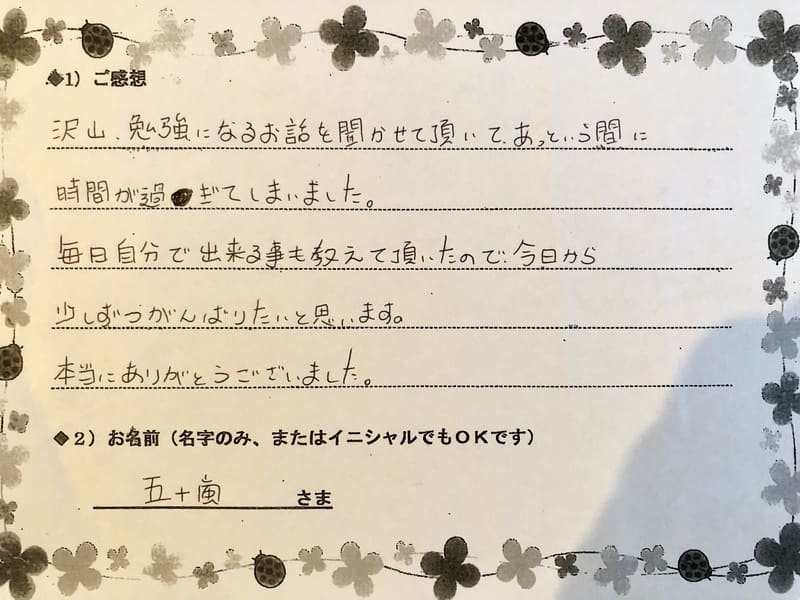 ◆1）ご感想
沢山、勉強になるお話を聞かせて頂いて、あっという間に
時間が過ぎてしまいました。
毎日自分で出来る事も教えて頂いたので、今日から
少しずつがんばりたいと思います。
本当にありがとうございました。
◆2）お名前（名字のみ、またはイニシャルでもOKです）
五十嵐 さま